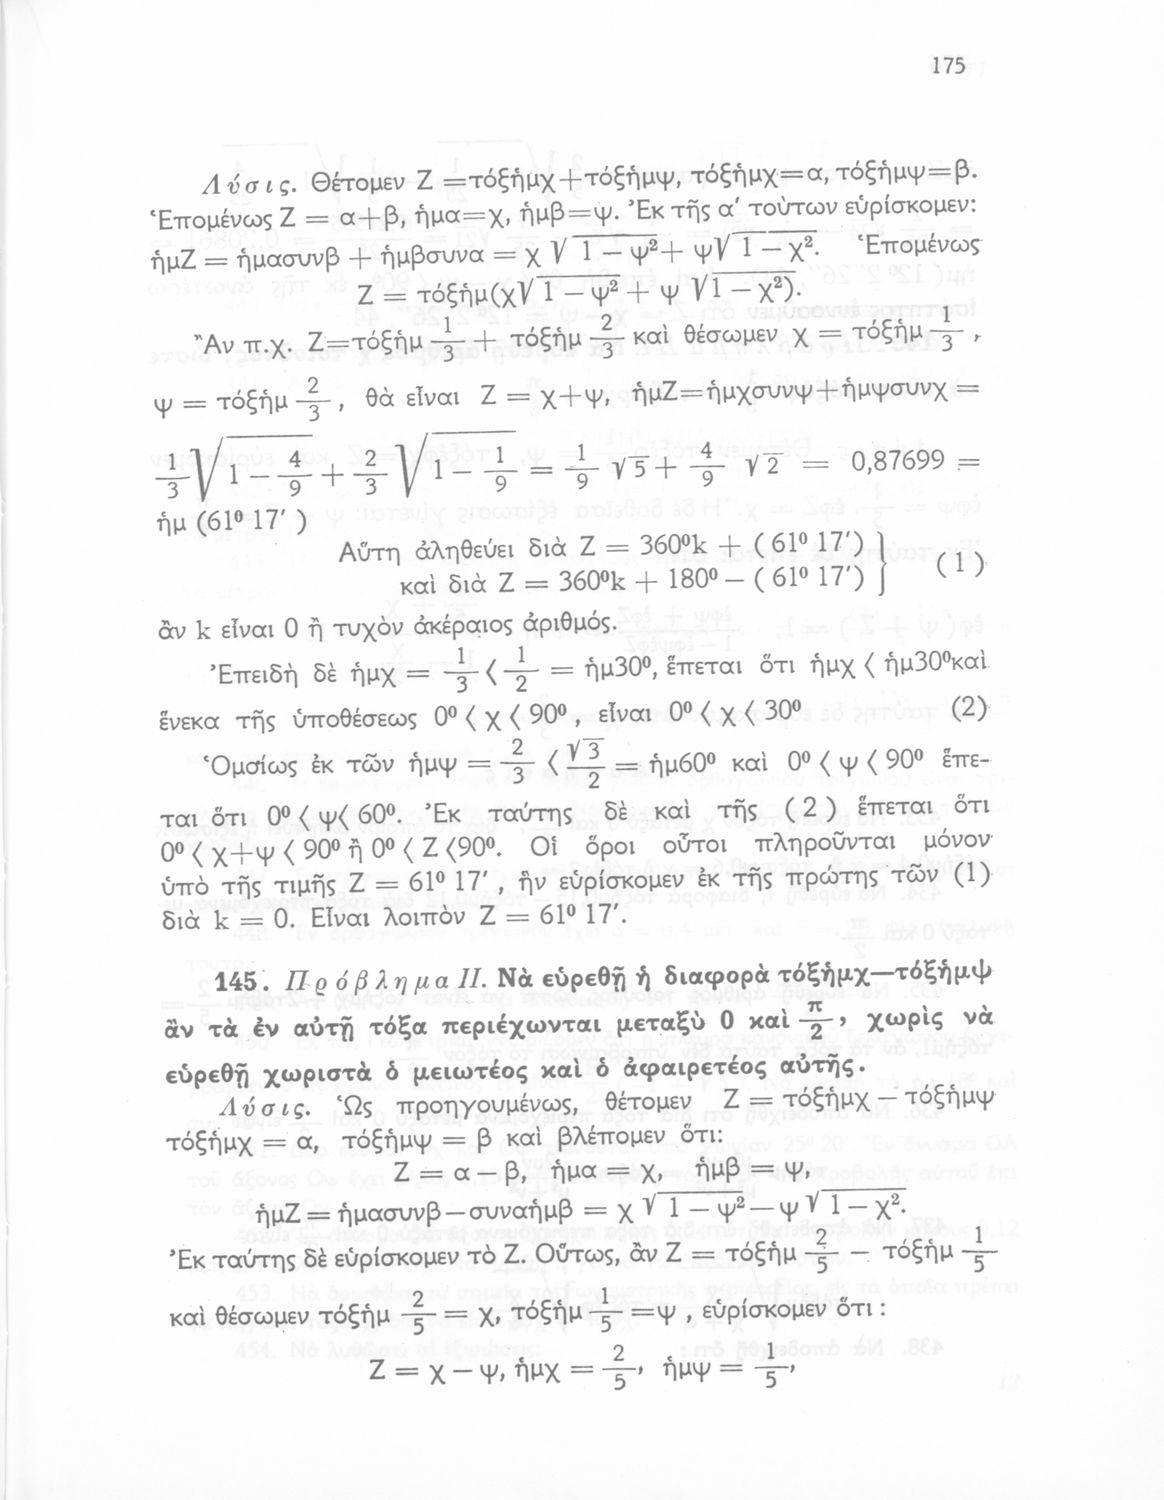 175
Λύσις. Θέτομεν Ζ =τόξἡμχ+τόξἡμψ, τόξἡμχ=α, τόξἡμψ=β.
Ἑπομένως Ζ = α+β, ἡμα=χ, ἡμβ=ψ. Ἐκ τῆς α′ τούτων εὑρίσκομεν:
ἡμΖ = ἡμασυνβ + ἡμβσυνα = χ √1 – ψ²+ ψ√1 – χ². Ἑπομένως
Ζ = τόξἡμ(χ√1 – ψ² + ψ √1 – χ²).
Ἂν π.χ. Ζ=τόξἡμ 1/3 + τόξἡμ 2/3 καὶ θέσωμεν χ = τόξἡμ 1/3 ,
ψ = τόξἡμ 2/3 , θὰ εἶναι Ζ = χ+ψ, ἡμΖ=ἡμχσυνψ+ἡμψσυνχ =
1/3 √1 – 4/9 + 2/3 √1 – 1/9 = 1/9 √5 + 4/9 √2 = 0,87699 =
ἡμ (61⁰ 17′ )
Αὕτη ἀληθεύει διὰ Ζ = 360⁰k + ( 61⁰ 17′) }
καὶ διὰ Ζ = 360⁰k + 180⁰ – ( 61⁰ 17′) } ( 1 )
ἂν k εἶναι 0 ἢ τυχὸν ἀκέραιος ἀριθμός.
Ἐπειδὴ δὲ ἡμχ = 1/3 ⟨ 1/2 = ἡμ30⁰, ἕπεται ὅτι ἡμχ ⟨ ἡμ30⁰καὶ
ἕνεκα τῆς ὑποθέσεως 0⁰ ⟨ χ ⟨ 90⁰ , εἶναι 0⁰ ⟨ χ ⟨ 30⁰ (2)
Ὁμοίως ἐκ τῶν ἡμψ = 2/3 ⟨ √3/2 = ἡμ60⁰ καὶ 0⁰ ⟨ ψ ⟨ 90⁰ ἕπε-
ται ὅτι 0⁰ ⟨ ψ⟨ 60⁰. Ἐκ ταύτης δὲ καὶ τῆς ( 2 ) ἕπεται ὅτι
0⁰ ⟨ χ+ψ ⟨ 90⁰ ἢ 0⁰ ⟨ Ζ ⟨90⁰. Οἱ ὅροι οὗτοι πληροῦνται μόνον
ὑπὸ τῆς τιμῆς Ζ = 61⁰ 17′ , ἣν εὑρίσκομεν ἐκ τῆς πρώτης τῶν (1)
διὰ k = 0. Εἶναι λοιπὸν Ζ = 61⁰ 17′.
145. Πρόβλημα ΙΙ. Νὰ εὑρεθῇ ἡ διαφορὰ τόξἡμχ—τόξἡμψ
ἂν τὰ ἐν αὐτῇ τόξα περιέχωνται μεταξὺ 0 καὶ π/2 , χωρὶς νὰ
εὑρεθῇ χωριστὰ ὁ μειωτέος καὶ ὁ ἀφαιρετέος αὐτῆς.
Λύσις. Ὡς προηγουμένως, θέτομεν Ζ = τόξἡμχ – τόξἡμψ
τόξἡμχ = α, τόξἡμψ = β καὶ βλέπομεν ὅτι:
Ζ = α – β, ἡμα = χ, ἡμβ = ψ,
ἡμΖ = ἡμασυνβ – συναἡμβ = χ √1 – ψ² – ψ √1 – χ².
Ἐκ ταύτης δὲ εὑρίσκομεν τὸ Ζ. Οὕτως, ἂν Ζ = τόξἡμ 2/5 – τόξἡμ 1/5
καὶ θέσωμεν τόξἡμ 2/5 = χ, τόξἡμ 1/5 =ψ , εὑρίσκομεν ὅτι :
Ζ = χ – ψ, ἡμχ = 2/5, ἡμψ = 1/5,